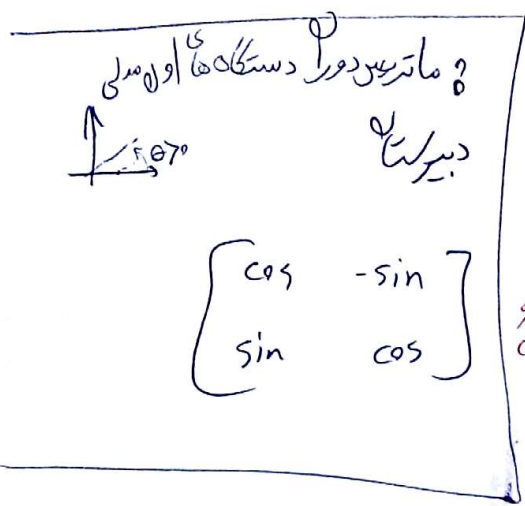 ؟ ماتریس دوران دستگاه های اول مدلی
دبیرستان
θ>0
cos -sin
sin cos